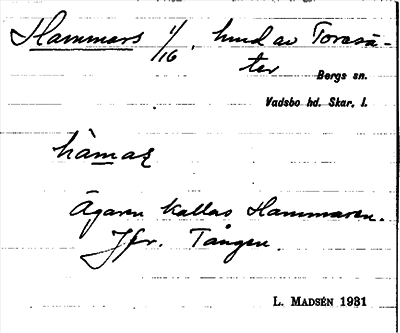 Hammars 1/16, hmd av Toresä-
ter
Bergs sn.
Vadsbo hd. Skar. l.
hàmaʂ
Ägaren kallas Hammaren.
Jfr. Tången.
L. MADSÉN 1931